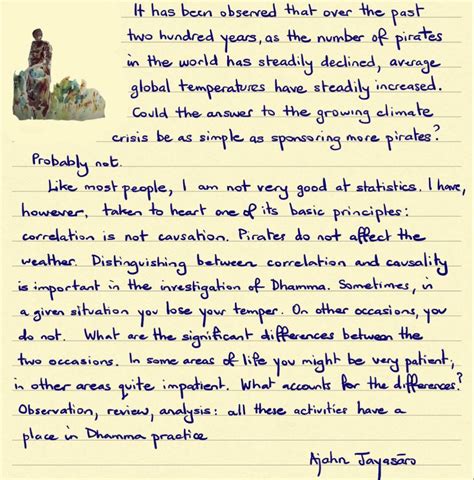 It has been observed that over the past
two hundred years, as the number of pirates
in the world has steadily declined, average
global temperatures have steadily increased.
Could the answer to the growing climate
crisis be as simple as sponsoring more pirates?
Probably not.
Like most people, I am not very good at statistics. I have,
however, taken to heart one of its basic principles:
correlation is not causation. Pirates do not affect the
weather. Distinguishing between correlation and causality
is important in the investigation of Dhamma. Sometimes, in
a given situation you lose your temper. On other occasions, you
do not. What are the significant differences between the
two occasions. In some areas of life you might be very patient,
in other areas quite impatient. What accounts for the differences?
Observation, review, analysis: all these activities have a
place in Dhamma practice
Ajahn Jayasāro